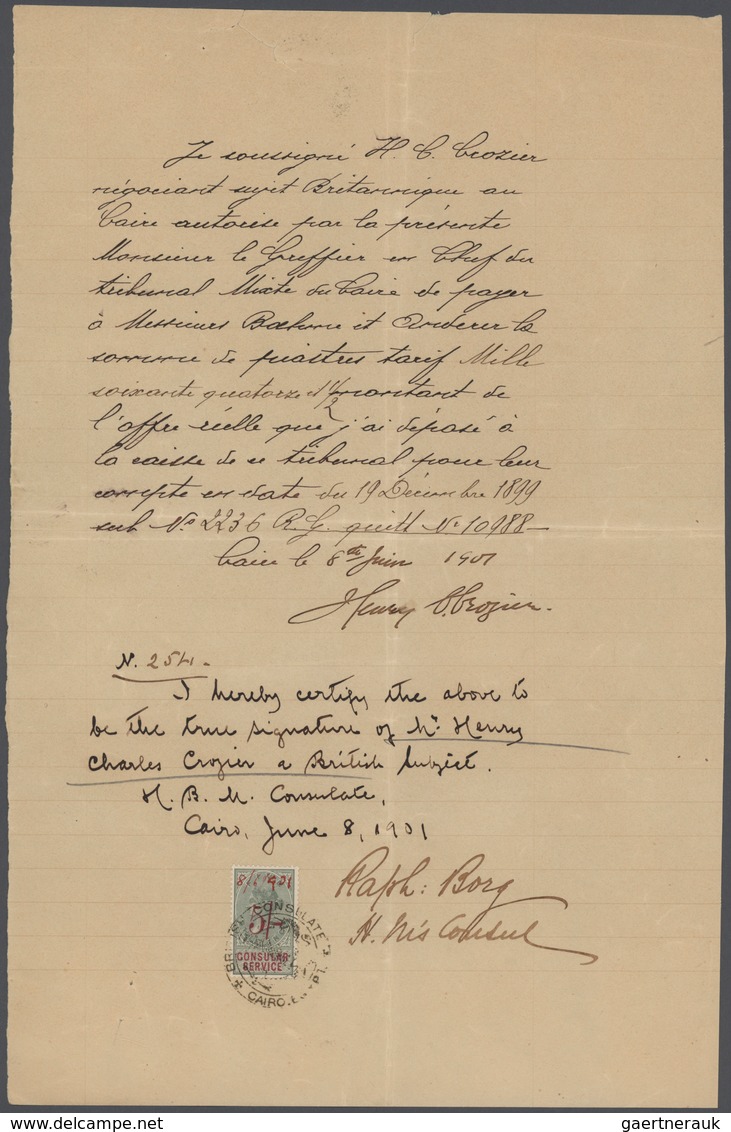 Je soussigné H. C. Crozier
négociant sujet Britannique au
Caire autorise par la présente
Monsieur le Greffier en Chef du
tribunal Mixte du Caire de payer
à Messieurs Boehme et Anderer la
somme de piastres tarif Mille
soixante quatorze 1/2 montant de
l'offre réelle que j'ai déposé à
la caisse de ce tribunal pour leur
compte en date du 19 Décembre 1899
sub No 2236 R. G. quitt No 10988
Caire le 8 Juin 1901
Henry C. Crozier.
N. 254.
I hereby certify the above to
be the true signature of Mr. Henry
Charles Crozier a British Subject.
H. B. M. Consulate,
Cairo, June 8, 1901
Raph: Borg
H. M's Consul
1901
5/-
CONSULAR
SERVICE
BRITISH CONSULATE
CAIRO. EGYPT.
www.delcampe.net
gaertnerauk